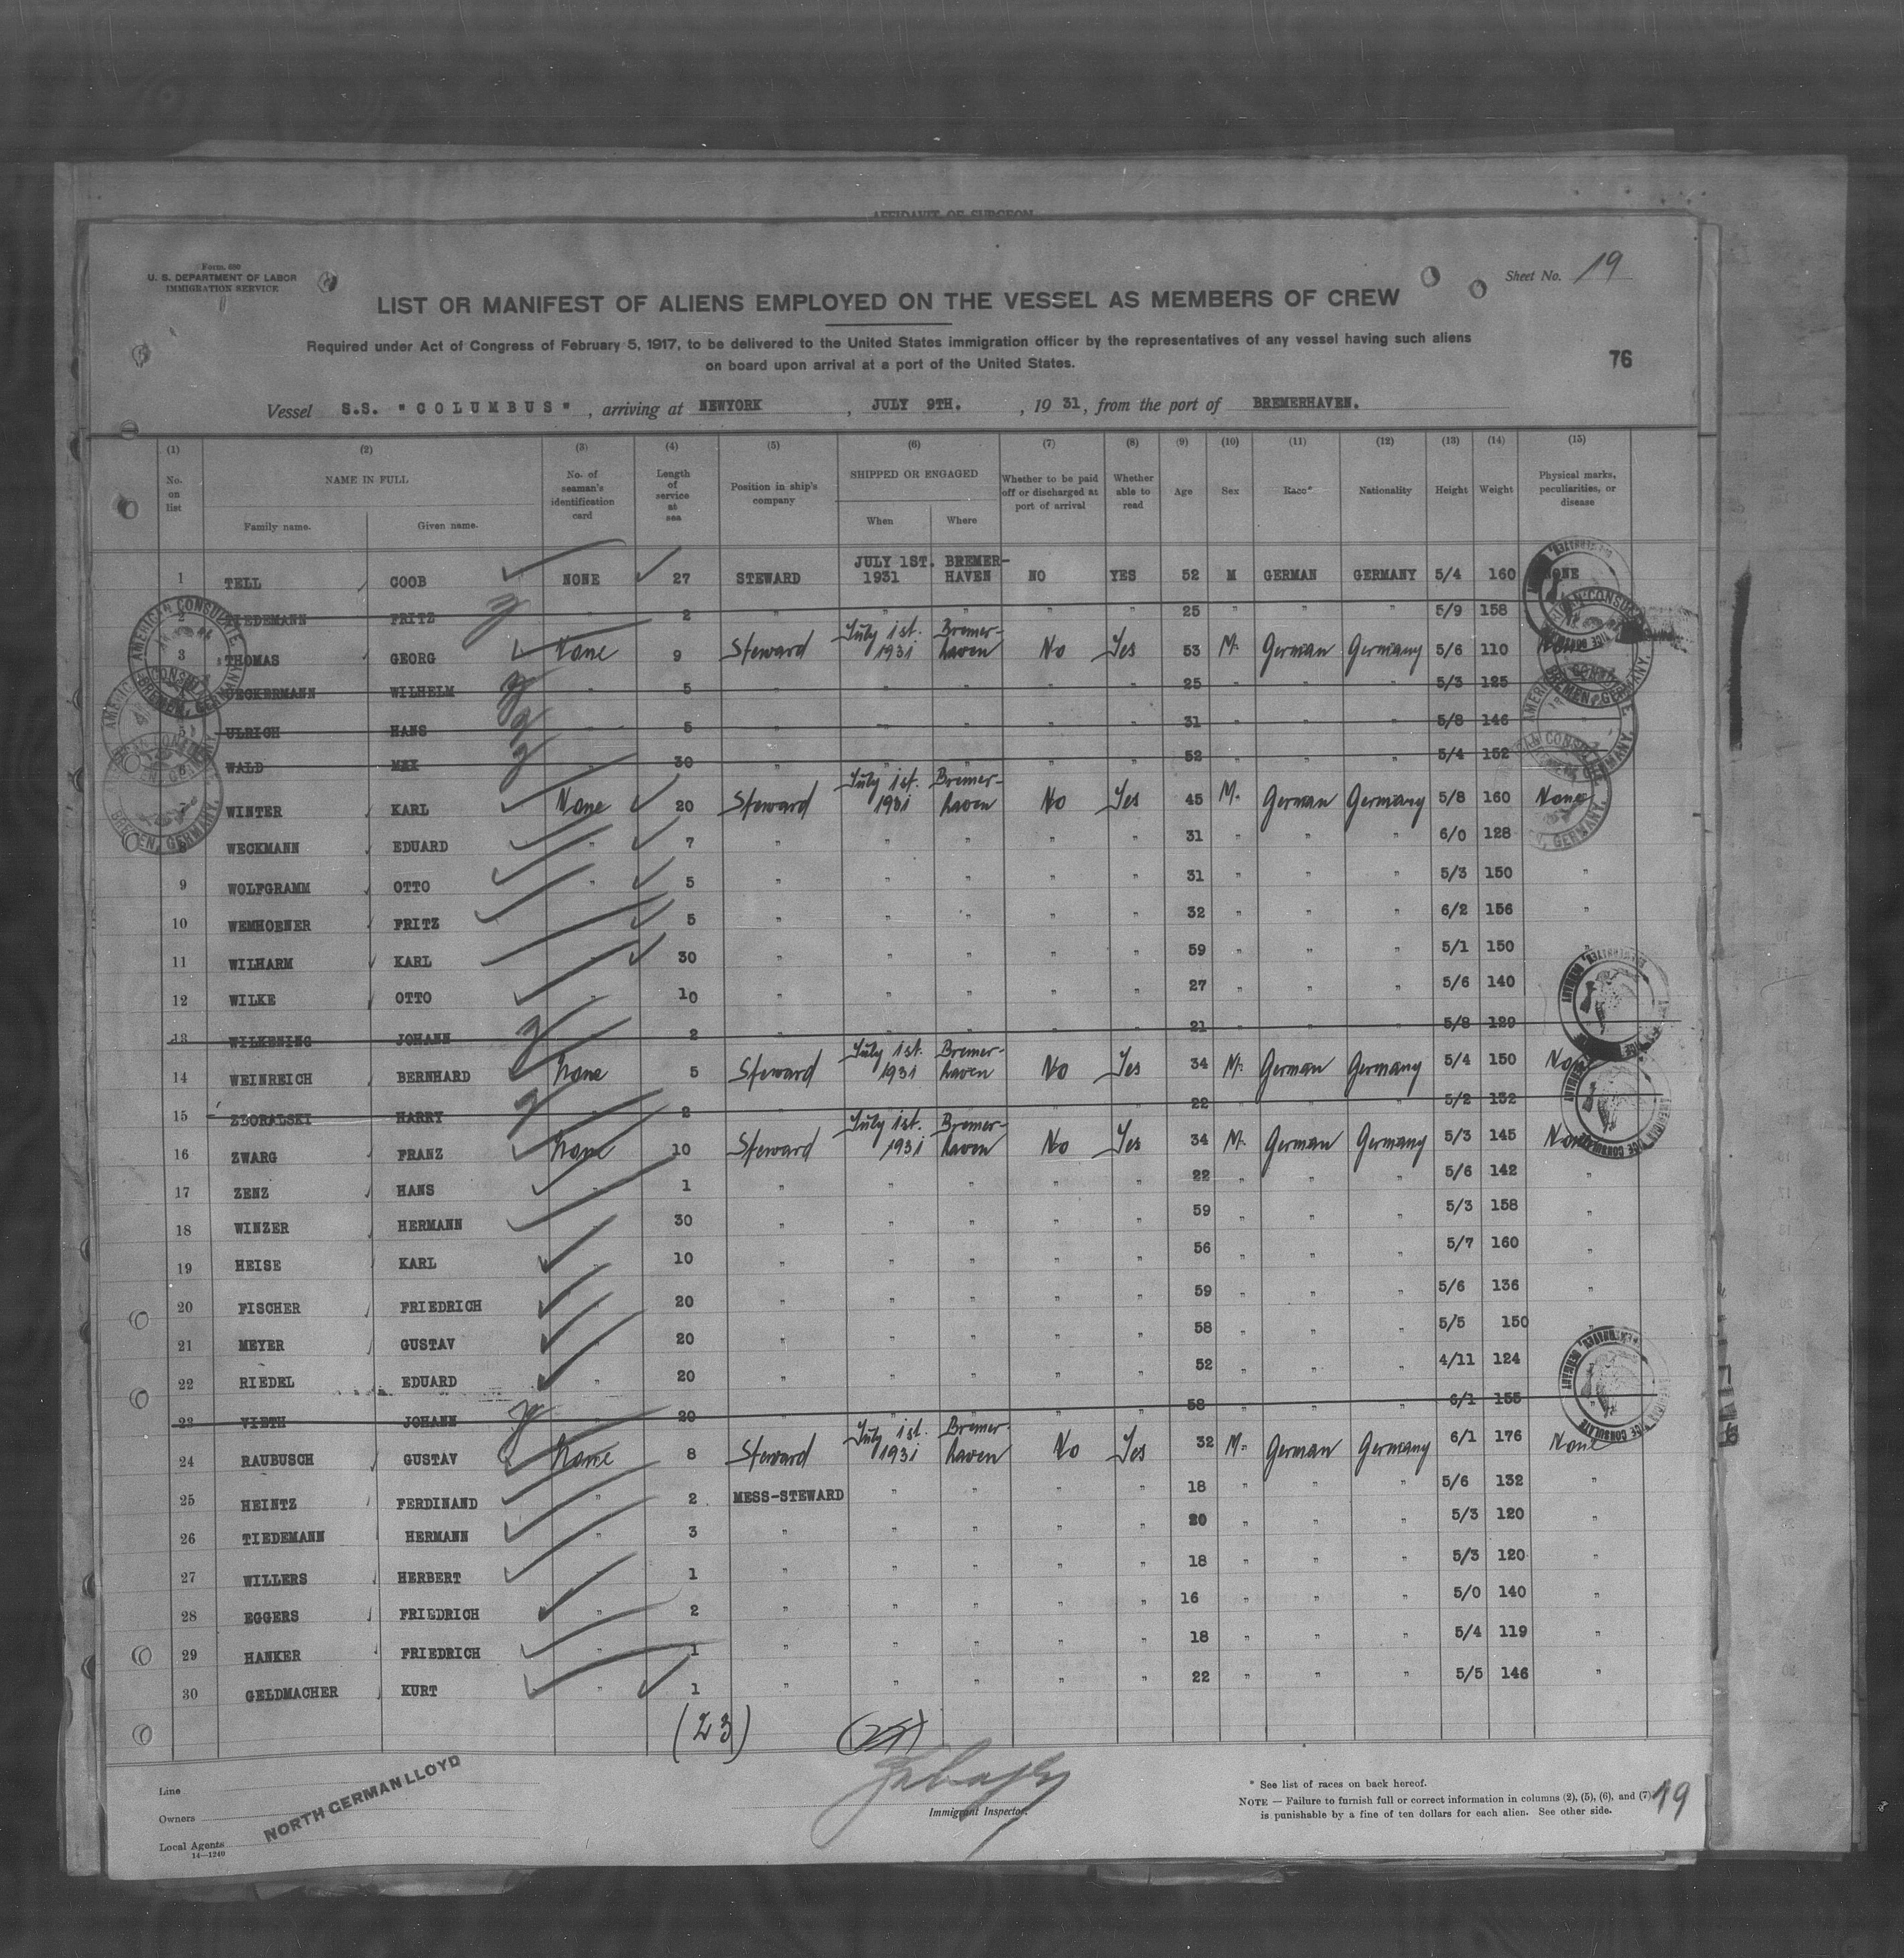 AFFIDAVIT OF SURGEON
Form 680
U. S. DEPARTMENT OF LABOR
IMMIGRATION SERVICE
Sheet No. 19
LIST OR MANIFEST OF ALIENS EMPLOYED ON THE VESSEL AS MEMBERS OF CREW
Required under Act of Congress of February 5, 1917, to be delivered to the United States immigration officer by the representatives of any vessel having such aliens
on board upon arrival at a port of the United States.
76
Vessel S.S. "COLUMBUS", arriving at NEWYORK, JULY 9TH., 1931, from the port of BREMERHAVEN.
(1) (2) (3) (4) (5) (6) (7) (8) (9) (10) (11) (12) (13) (14) (15)
No. on list NAME IN FULL Family name. Given name. No. of seaman's identification card Length of service at sea Position in ship's company SHIPPED OR ENGAGED When Where Whether to be paid off or discharged at port of arrival Whether able to read Age Sex Race* Nationality Height Weight Physical marks, peculiarities, or disease
1 TELL COOB NONE 27 STEWARD JULY 1ST. 1931 BREMER-HAVEN NO YES 52 M GERMAN GERMANY 5/4 160 NONE
2 TIEDEMANN FRITZ " 2 " " " " " 25 " " " 5/9 158
3 THOMAS GEORG None 9 Steward July 1st. 1931 Bremer-haven No Yes 53 M. German Germany 5/6 110 None
UECKERMANN WILHELM " 5 " " " " " 25 " " " 5/3 125
5 ULRICH HANS " 5 " " " " " 31 " " " 5/8 146 "
6 WALD MAX " 30 " " " " " 52 " " " 5/4 152
7 WINTER KARL None 20 Steward July 1st. 1931 Bremer-haven No Yes 45 M. German Germany 5/8 160 None
8 WECKMANN EDUARD " 7 " " " " " 31 " " " 6/0 128
9 WOLFGRAMM OTTO " 5 " " " " " 31 " " " 5/3 150 "
10 WEMHOENER FRITZ " 5 " " " " " 32 " " " 6/2 156 "
11 WILHARM KARL " 30 " " " " " 59 " " " 5/1 150 "
12 WILKE OTTO " 10 " " " " " 27 " " " 5/6 140
13 WILKENING JOHANN " 2 " " " " " 21 " " " 5/8 129
14 WEINREICH BERNHARD None 5 Steward July 1st. 1931 Bremer-haven No Yes 34 M. German Germany 5/4 150 None
15 ZBORALSKI HARRY " 2 " " " " " 22 " " " 5/2 132
16 ZWARG FRANZ None 10 Steward July 1st. 1931 Bremer-haven No Yes 34 M. German Germany 5/3 145 None
17 ZENZ HANS " 1 " " " " " 22 " " " 5/6 142 "
18 WINZER HERMANN " 30 " " " " " 59 " " " 5/3 158 "
19 HEISE KARL " 10 " " " " " 56 " " " 5/7 160 "
20 FISCHER FRIEDRICH " 20 " " " " " 59 " " " 5/6 136 "
21 MEYER GUSTAV " 20 " " " " " 58 " " " 5/5 150 "
22 RIEDEL EDUARD " 20 " " " " " 52 " " " 4/11 124
23 VIETH JOHANN " 20 " " " " " 58 " " " 6/1 155 "
24 RAUBUSCH GUSTAV None 8 Steward July 1st. 1931 Bremer-haven No Yes 32 M. German Germany 6/1 176 None
25 HEINTZ FERDINAND " 2 MESS-STEWARD " " " " 18 " " " 5/6 132 "
26 TIEDEMANN HERMANN " 3 " " " " " 20 " " " 5/3 120 "
27 WILLERS HERBERT " 1 " " " " " 18 " " " 5/3 120 "
28 EGGERS FRIEDRICH " 2 " " " " " 16 " " " 5/0 140 "
29 HANKER FRIEDRICH " 1 " " " " " 18 " " " 5/4 119 "
30 GELDMACHER KURT " 1 " " " " " 22 " " " 5/5 146 "
(23)
Line
Owners
Local Agents
14—1240
NORTH GERMAN LLOYD
Immigrant Inspector.
* See list of races on back hereof.
NOTE — Failure to furnish full or correct information in columns (2), (5), (6), and (7)
is punishable by a fine of ten dollars for each alien. See other side.
19
AMERICAN CONSULATE
BREMEN, GERMANY.